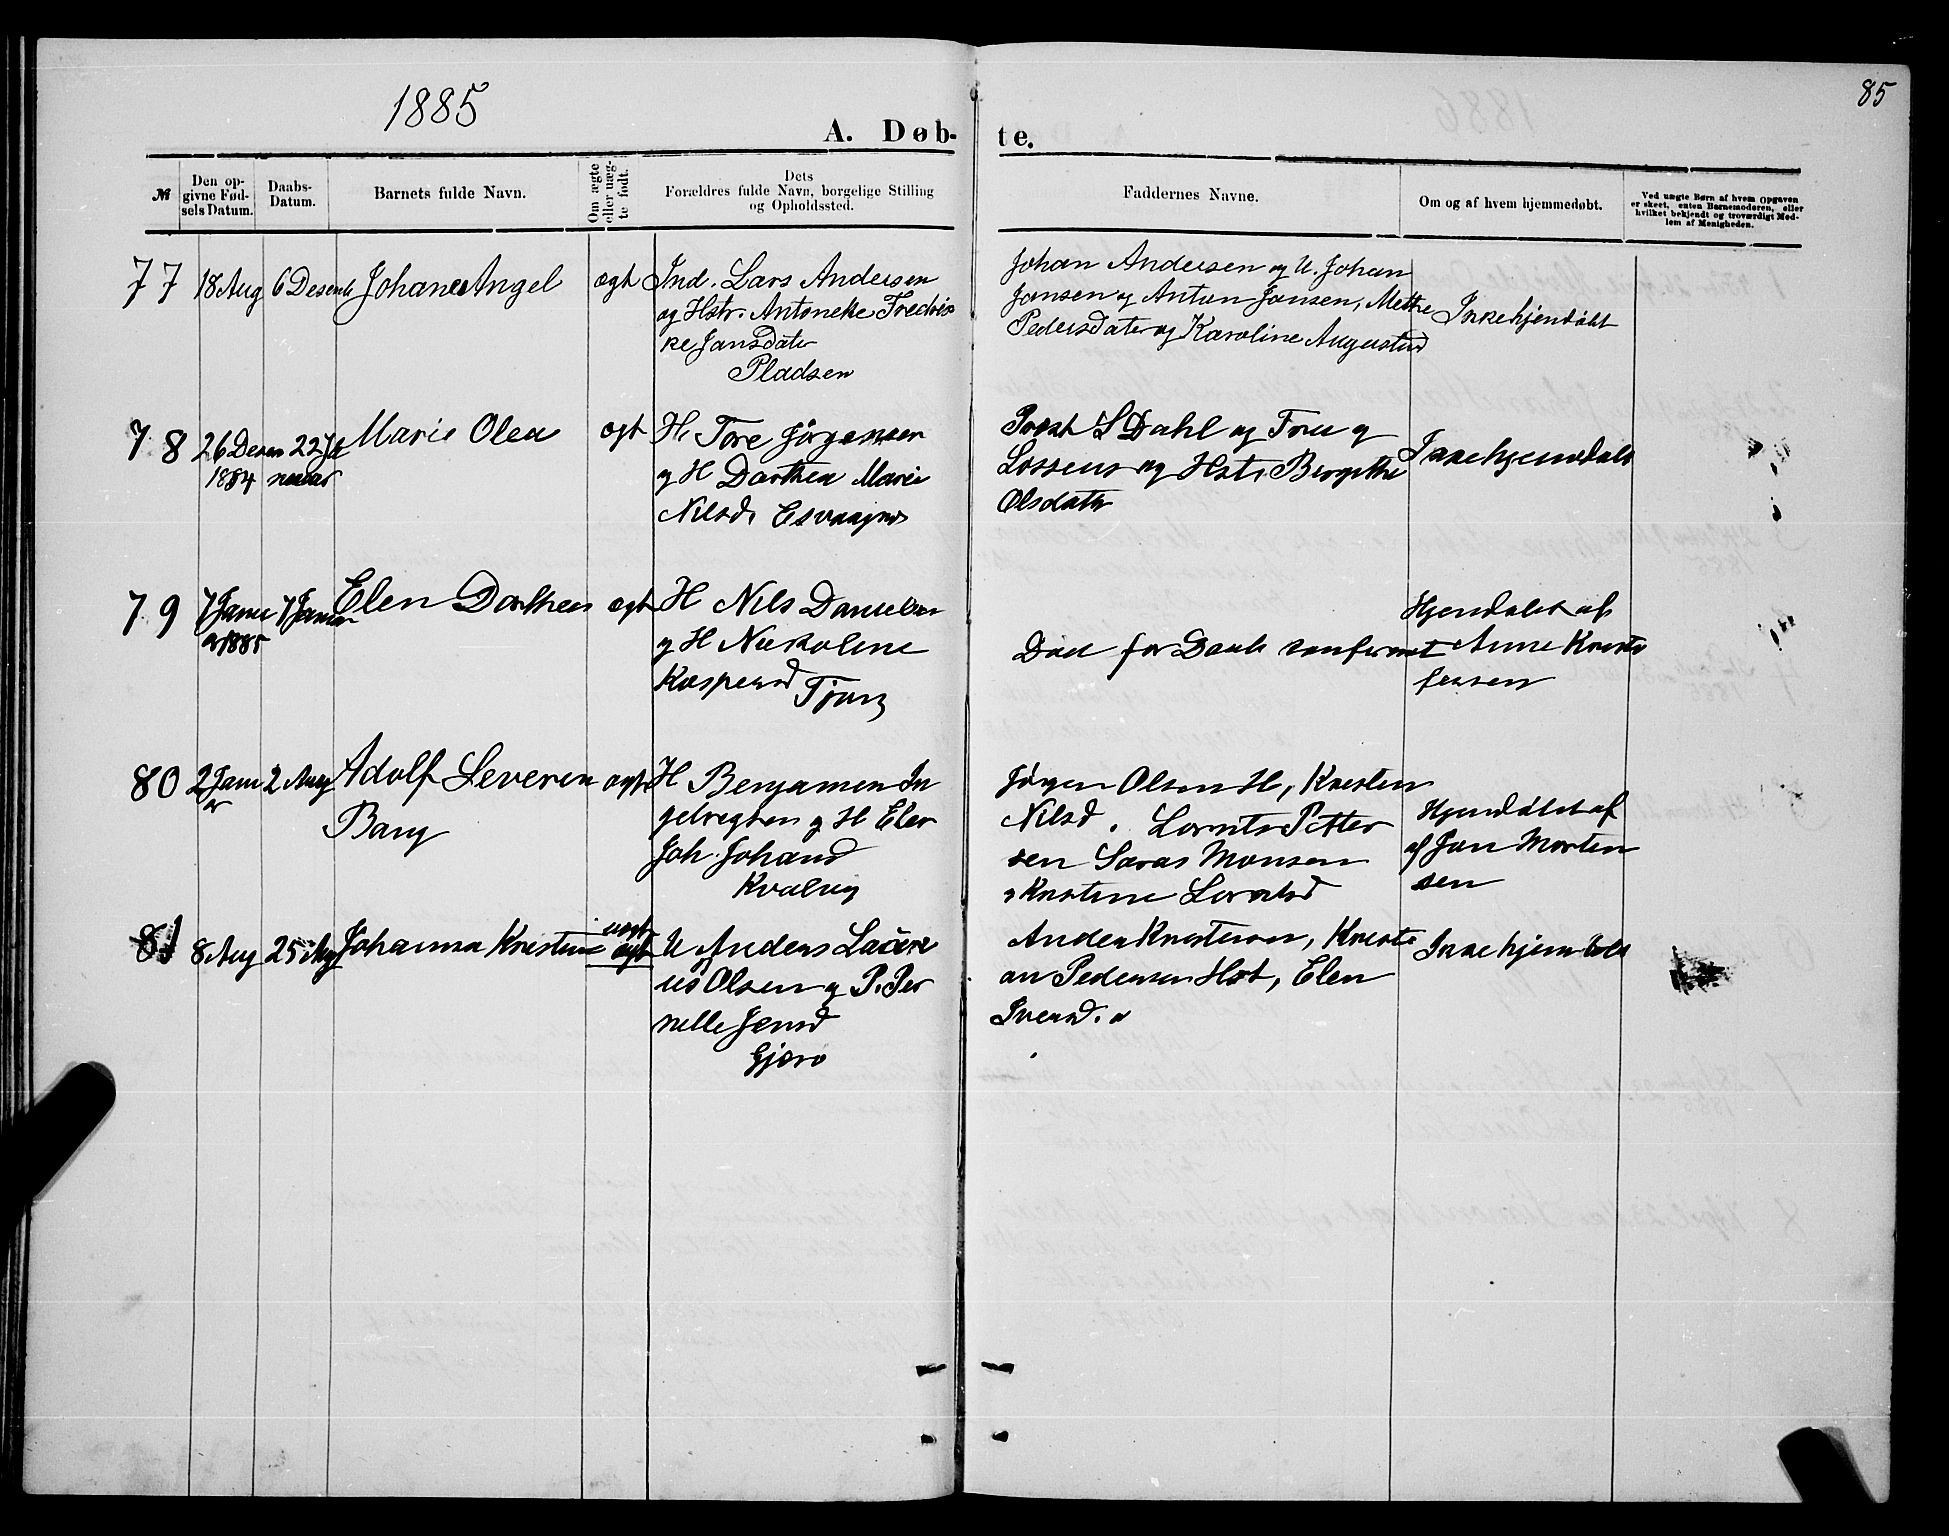 1885
85
A. Døb-
te.
№
Den op-
givne Fød-
sels Datum.
Daabs-
Datum.
Barnets fulde Navn.
Om ægte
eller uæg-
te født.
Dets
Forældres fulde Navn, borgelige Stilling
og Opholdssted.
Faddernes Navne.
Om og af hvem hjemmedøbt.
Ved uægte Børn af hvem Opgaven
er skeet, enten Barnemoderen, eller
hvilket bekjendt og troværdigt Med-
lem af Menigheden.
77
18 Aug
6 Desemb
Johan Angel
ægt
Ind. Lars Andersen
og Hstr. Antoneke Fredris
ke Jansdatr
Pladsen
Johan Andersen og U. Johan
Jansen og Anton Jansen, Mette
Pedersdater og Karoline Augustind
Ikke hjemdøbt
78
26 Desem
1884
22 Ja
nuar
Marie Olea
ægt
H. Tore Jørgensen
og H Dorthea Marie
Nilsd.
Præst S Dahl og Frue og
og Hstr. Bergithe
Olsdatr
Ikke hjemdøbt
79
7 Janu
ar 1885
7 Januar
Elen Dorthea
ægt
H Nils Danielsen
og H Nikoline
Kaspersd
Død før Daab konfermat
Hjemdøbt af
Anne Kristo
fersen
80
2 Janu
ar
2 Aug
Adolf Severin
Bang
ægt
H Benjamen In
gebregtsen og H Elen
Joh. Johansd
Kvalvig
Jørgen Olsen H, Kristen
Nilsd. Lornts Petter
sen Saras Monsen
og Kristine Lorntsd
Hjemdøbt af
af Jan Morten
sen
81
8 Aug
25 Aug
Johanna Kristine
uægt
ægt
U Anders
us Olsen og P. Per
nelle Jensd
Gjærø
Anders Kristensen, Kristi
an Pedersen Hst, Elen
Iversd.
Ikke hjemdøbt